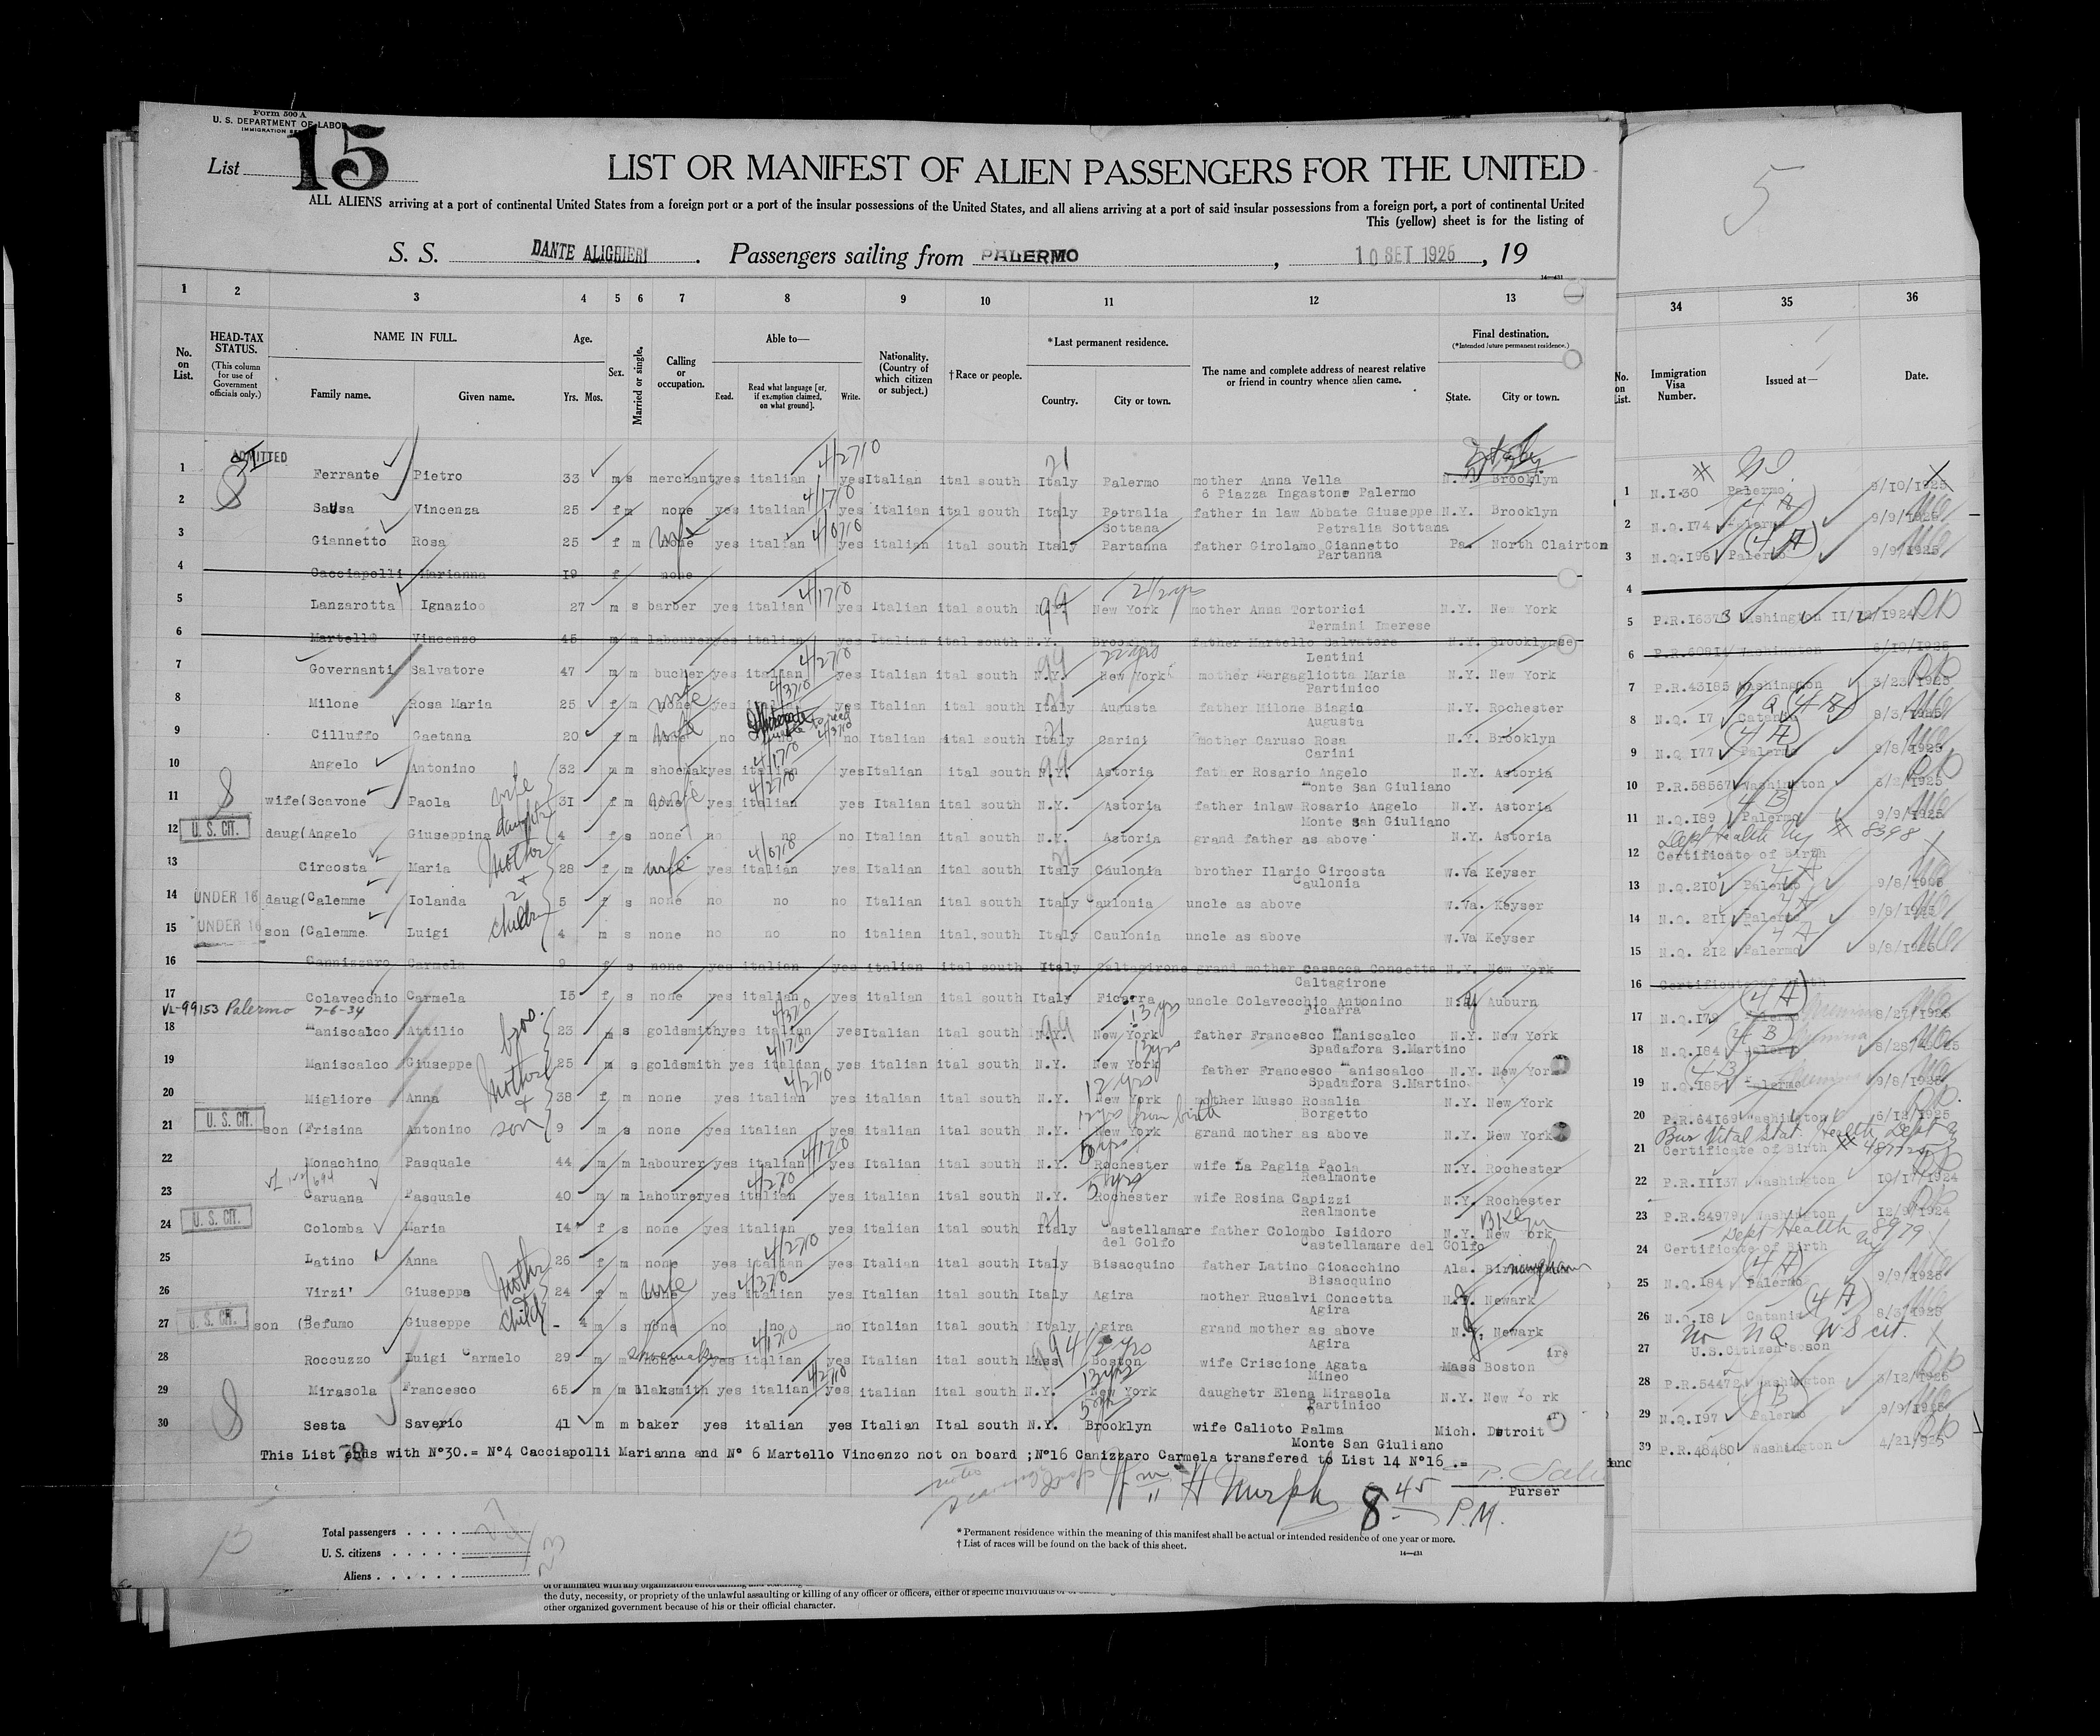 Form 500 A
U. S. DEPARTMENT OF LABOR
IMMIGRATION
List 15
LIST OR MANIFEST OF ALIEN PASSENGERS FOR THE UNITED
ALL ALIENS arriving at a port of continental United States from a foreign port or a port of the insular possessions of the United States, and all aliens arriving at a port of said insular possessions from a foreign port, a port of continental United
This (yellow) sheet is for the listing of
S. S. DANTE ALIGHIERI . Passengers sailing from PALERMO , 10 SET 1925 , 19
14—431
5
1 2 3 4 5 6 7 8 9 10 11 12 13 34 35 36
No. on List.
HEAD-TAX STATUS.
(This column for use of Government officials only.)
NAME IN FULL.
Family name. Given name.
Age.
Yrs. Mos.
Sex.
Married or single.
Calling or occupation.
Able to—
Read. Read what language [or, if exemption claimed, on what ground]. Write.
Nationality. (Country of which citizen or subject.)
†Race or people.
*Last permanent residence.
Country. City or town.
The name and complete address of nearest relative or friend in country whence alien came.
Final destination.
(*Intended future permanent residence.)
State. City or town.
No. on List.
Immigration Visa Number.
Issued at—
Date.
ADMITTED
1 Ferrante Pietro 33 m s merchant yes italian yes Italian ital south Italy Palermo mother Anna Vella N.Y. Brooklyn 1 N.I.30 Palermo 9/10/1925
6 Piazza Ingastone Palermo
2 Sausa Vincenza 25 f m none yes italian yes italian ital south Italy Petralia father in law Abbate Giuseppe N.Y. Brooklyn 2 N.Q.174 Palermo 9/9/1925
Sottana Petralia Sottana
3 Giannetto Rosa 25 f m none wife yes italian yes italian ital south Italy Partanna father Girolamo Giannetto Pa. North Clairton 3 N.Q.196 Palermo (4 A) 9/9/1925
Partanna
4 Cacciapolli Marianna 19 f none 4
5 Lanzarotta Ignazio 27 m s barber yes italian yes Italian ital south New York mother Anna Tortorici N.Y. New York 5 P.R.16373 Washington 1924
Termini Imerese
6 Martello Vincenzo 45 m m labourer yes italian yes Italian ital south N.Y. Brooklyn father Martello Salvatore N.Y. Brooklyn 6 Washington
Lentini
7 Governanti Salvatore 47 m m bucher yes italian yes Italian ital south N.Y. New York mother Margagliotta Maria N.Y. New York 7 P.R.43185 Washington 3/23/1925
Partinico
8 Milone Rosa Maria 25 f m none wife yes yes Italian ital south Italy Augusta father Milone Biagio N.Y. Rochester 8 N.Q. 17 Catania 1925
Augusta
9 Cilluffo Gaetana 20 f m none wife no no no Italian ital south Italy Carini mother Caruso Rosa N.Y. Brooklyn 9 N.Q.177 Palermo (4 A) 9/8/1925
Carini
10 Angelo Antonino 32 m m shoemak yes italian yes Italian ital south N.Y. Astoria father Rosario Angelo N.Y. Astoria 10 P.R.58567 Washington 1925
Monte San Giuliano
11 wife (Scavone Paola wife 31 f m none wife yes italian yes Italian ital south N.Y. Astoria father inlaw Rosario Angelo N.Y. Astoria 11 N.Q.189 Palermo 4 B 9/9/1925
Monte San Giuliano
12 U. S. CIT. daug (Angelo Giuseppina daughter 4 f s none no no no Italian ital south N.Y. Astoria grand father as above N.Y. Astoria 12 Certificate of Birth Dept Health Ny # 8398
13 Circosta Maria Mother 28 f m wife yes italian yes Italian ital south Italy Caulonia brother Ilario Circosta W.Va Keyser 13 N.Q.210 Palermo 9/8/1925
Caulonia
14 UNDER 16 daug (Calemme Iolanda + 2 5 f s none no no no Italian ital south Italy Caulonia uncle as above W.Va. Keyser 14 N.Q. 211 Palermo 9/8/1925
15 UNDER 16 son (Calemme Luigi children 4 m s none no no no italian ital.south Italy Caulonia uncle as above W.Va Keyser 15 N.Q. 212 Palermo 9/8/1925
16 Cannizzaro Carmela 9 f s none yes italian yes italian ital south Italy Caltagirone grand mother Casacca Concetta N.Y. New York 16 Certificate of Birth
Caltagirone
17 Colavecchio Carmela 15 f s none yes italian yes italian ital south Italy Ficarra uncle Colavecchio Antonino N.Y Auburn 17 N.Q.179 (4 A) 1925
VL-99153 Palermo 7-6-34 Ficarra
18 Maniscalco Attilio bros. 23 m s goldsmith yes italian yes Italian ital south N.Y. New York 13 yrs father Francesco Maniscalco N.Y. New York 18 N.Q.184 (4 B) 8/28/1925
Spadafora S.Martino
19 Maniscalco Giuseppe 25 m s goldsmith yes italian yes italian ital south N.Y. New York father Francesco Maniscalco N.Y. New York 19 N.Q.185 Palermo 9/8/1925
Spadafora S.Martino
20 Migliore Anna Mother 38 f m none yes italian yes italian ital south N.Y. New York 12 yrs mother Musso Rosalia N.Y. New York 20 P.R.64169 Washington 6/12/1925
Borgetto
21 U. S. CIT. son (Frisina Antonino + son 9 m s none yes italian yes italian ital south N.Y. New York from birth grand mother as above N.Y. New York 21 Certificate of Birth Bur Vital Stat. Health Dept
22 Monachino Pasquale 44 m m labourer yes italian yes Italian ital south N.Y. Rochester wife La Paglia Paola N.Y. Rochester 22 P.R.11137 Washington 10/17/1924
Realmonte
23 Caruana Pasquale 40 m m labourer yes italian yes italian ital south N.Y. Rochester 5 yrs wife Rosina Capizzi N.Y. Rochester 23 P.R.24979 Washington 12/9/1924
Realmonte
24 U. S. CIT. Colomba Maria 14 f s none yes italian yes italian ital south Italy Castellamare father Colombo Isidoro N.Y. New York 24 Certificate of Birth Dept Health Ny 8979
del Golfo Castellamare del Golfo
25 Latino Anna 26 f m none yes italian yes Italian ital south Italy Bisacquino father Latino Gioacchino Ala. Birmingham 25 N.Q.184 Palermo (4 A) 9/9/1925
Bisacquino
26 Virzi' Giuseppa Mother 24 f m wife yes italian yes Italian ital south Italy Agira mother Rucalvi Concetta N.J. Newark 26 N.Q.18 Catania (4 A) 8/31/1925
Agira
27 U. S. CIT. son (Befumo Giuseppe + child - 4 m s none no no no Italian ital south Italy Agira grand mother as above N.J. Newark 27 U.S.Citizen's son No NQ U.S cit.
Agira
28 Roccuzzo Luigi Carmelo 29 m m shoemaker yes italian yes Italian ital south Mass Boston wife Criscione Agata Mass Boston 28 P.R.54472 Washington 3/12/1925
Mineo
29 Mirasola Francesco 65 m m blaksmith yes italian yes italian ital south N.Y. New York 13 yrs daughetr Elena Mirasola N.Y. New Yo rk 29 N.Q.197 Palermo B 9/9/1925
Partinico
30 Sesta Saverio 41 m m baker yes italian yes Italian Ital south N.Y. Brooklyn wife Calioto Palma Mich. Detroit 30 P.R.48480 Washington 4/21/925
Monte San Giuliano
This List ends with N°30.= N°4 Cacciapolli Marianna and N° 6 Martello Vincenzo not on board ;N°16 Canizzaro Carmela transfered to List 14 N°16 .=
Purser
H Murphy 8 45 P.M.
Total passengers . . . .
U. S. citizens . . . . .
Aliens . . . . . .
* Permanent residence within the meaning of this manifest shall be actual or intended residence of one year or more.
† List of races will be found on the back of this sheet.
14—431
the duty, necessity, or propriety of the unlawful assaulting or killing of any officer or officers, either of specific individuals
other organized government because of his or their official character.